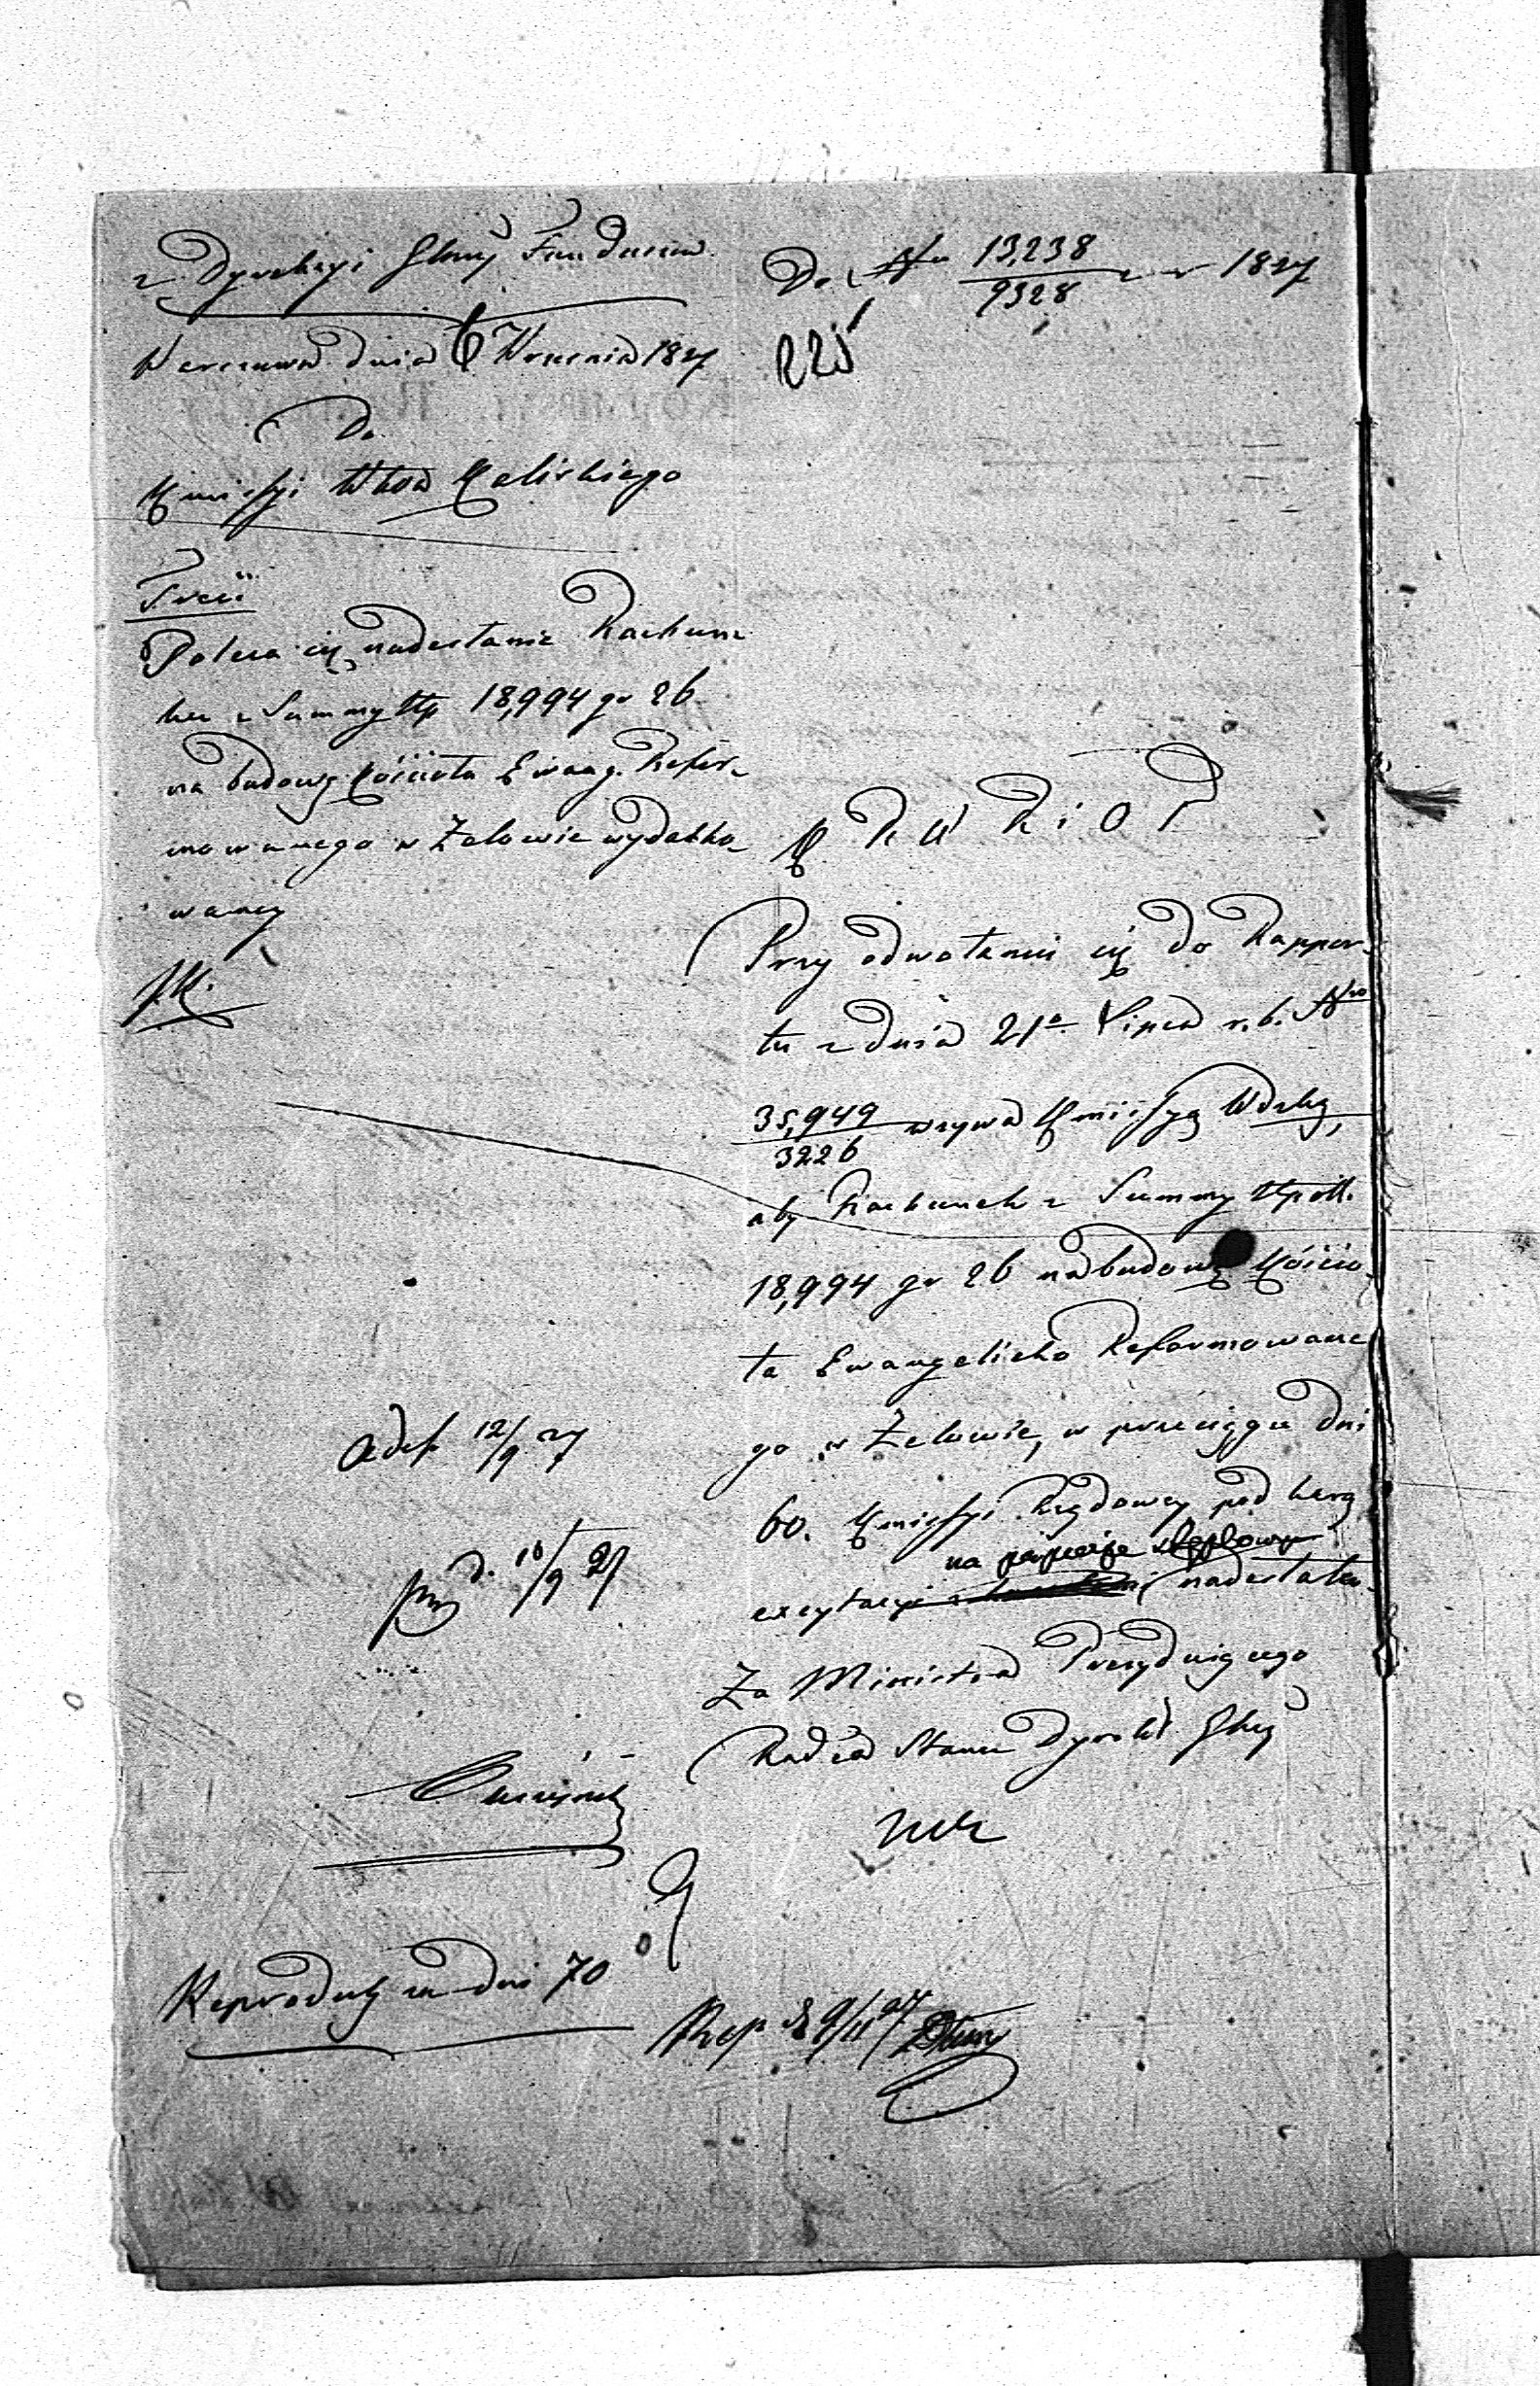 z Dyrekcyi Głney Funduszów
Warszawa dnia 6 Września 1827
Do
Kmissyi Wtwa Kaliskiego
Treść
Poleca się nadesłanie Rachun-
ku z Summy złp 18,994 gr 26
na budowę Kościoła Ewang. Refor-
mowanego w Zelowie wydatko-
waney
Do Nu 13,238
9328 z r 1827
225
K R W R i O P
Przy odwołaniu się do Rappor-
tu z dnia 21o Lipca r. b. Nro
35,949
3226 wzywa Kmissyą Wdzką,
aby Rachunek z Summy złpoll.
18,994 gr 26 na budowę Kościo-
ła Ewangelicko Reformowane
go w Zelowie, w przeciągu dni
60. Kmissyi Rządowey pod karą
na papierze stęplowym
excytacyi nadesłała.
Za Ministra Prezyduiącego
Radca Stanu Dyrekt. Głny
Adef 12/9 27
d. 10/9 27
Reprodukt za dni 70
Rep d 9/11 27